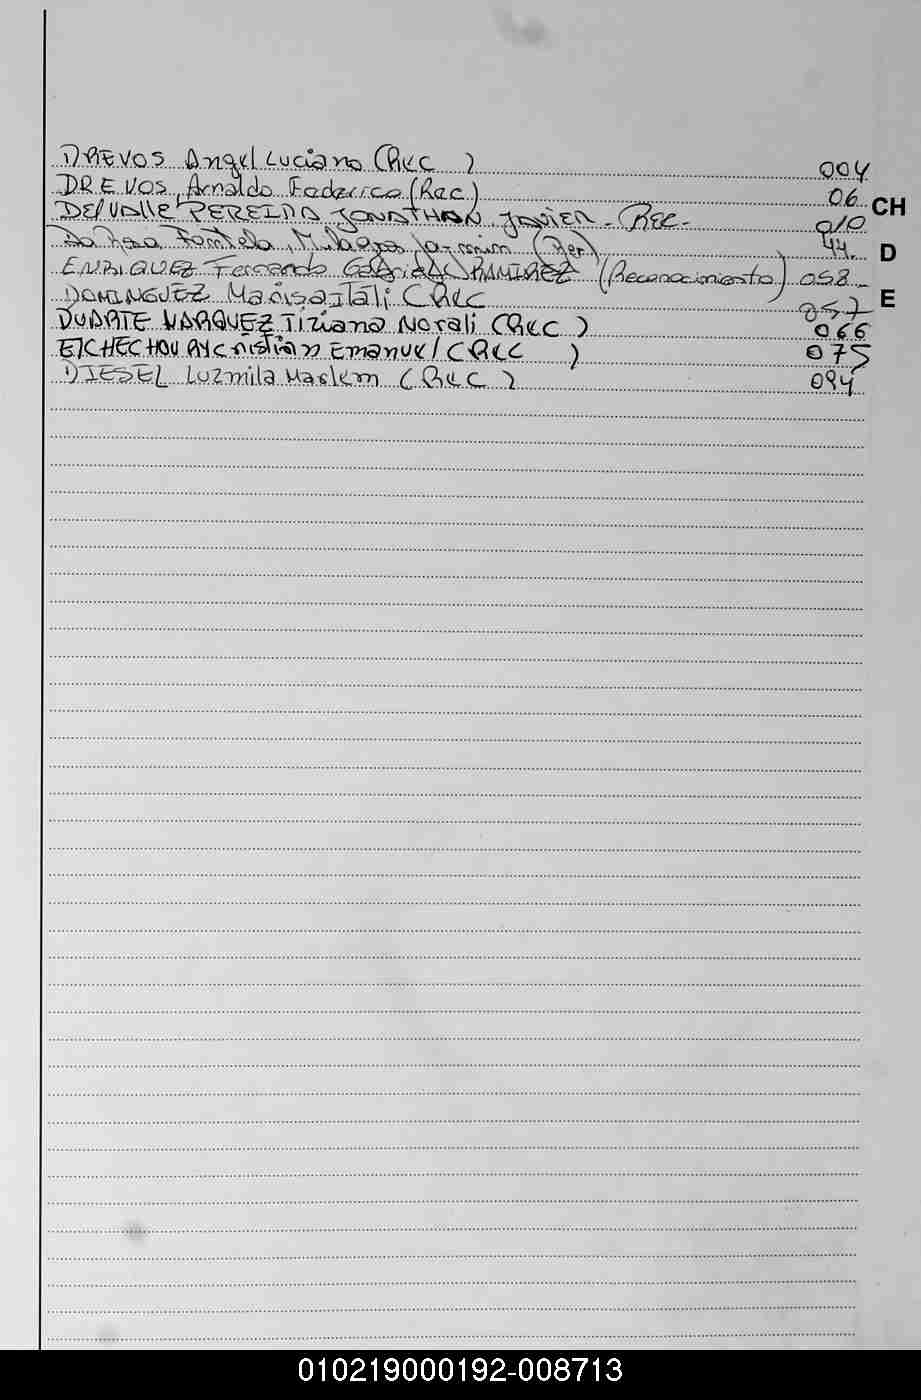 DREVOS Angel Luciano (Rec )
004
DREVOS, Arnaldo Federico (Rec)
06
CH
DELVALLE PEREIRA JONATHAN JAVIER - REC -
010
Da Rosa Fontela, Milagros Jazmin (Rec)
44.
D
ENRIQUEZ Fernando Gabriel RAMIREZ (Reconocimiento) 058
DOMINGUEZ Marisa Itali (Rec
057
E
DUARTE MARQUEZ Tiziana Norali (Rec )
066
EICHECHOURY Cristian Emanuel (Rec )
075
DIESEL Luzmila Marlem (Rec )
094
010219000192-008713